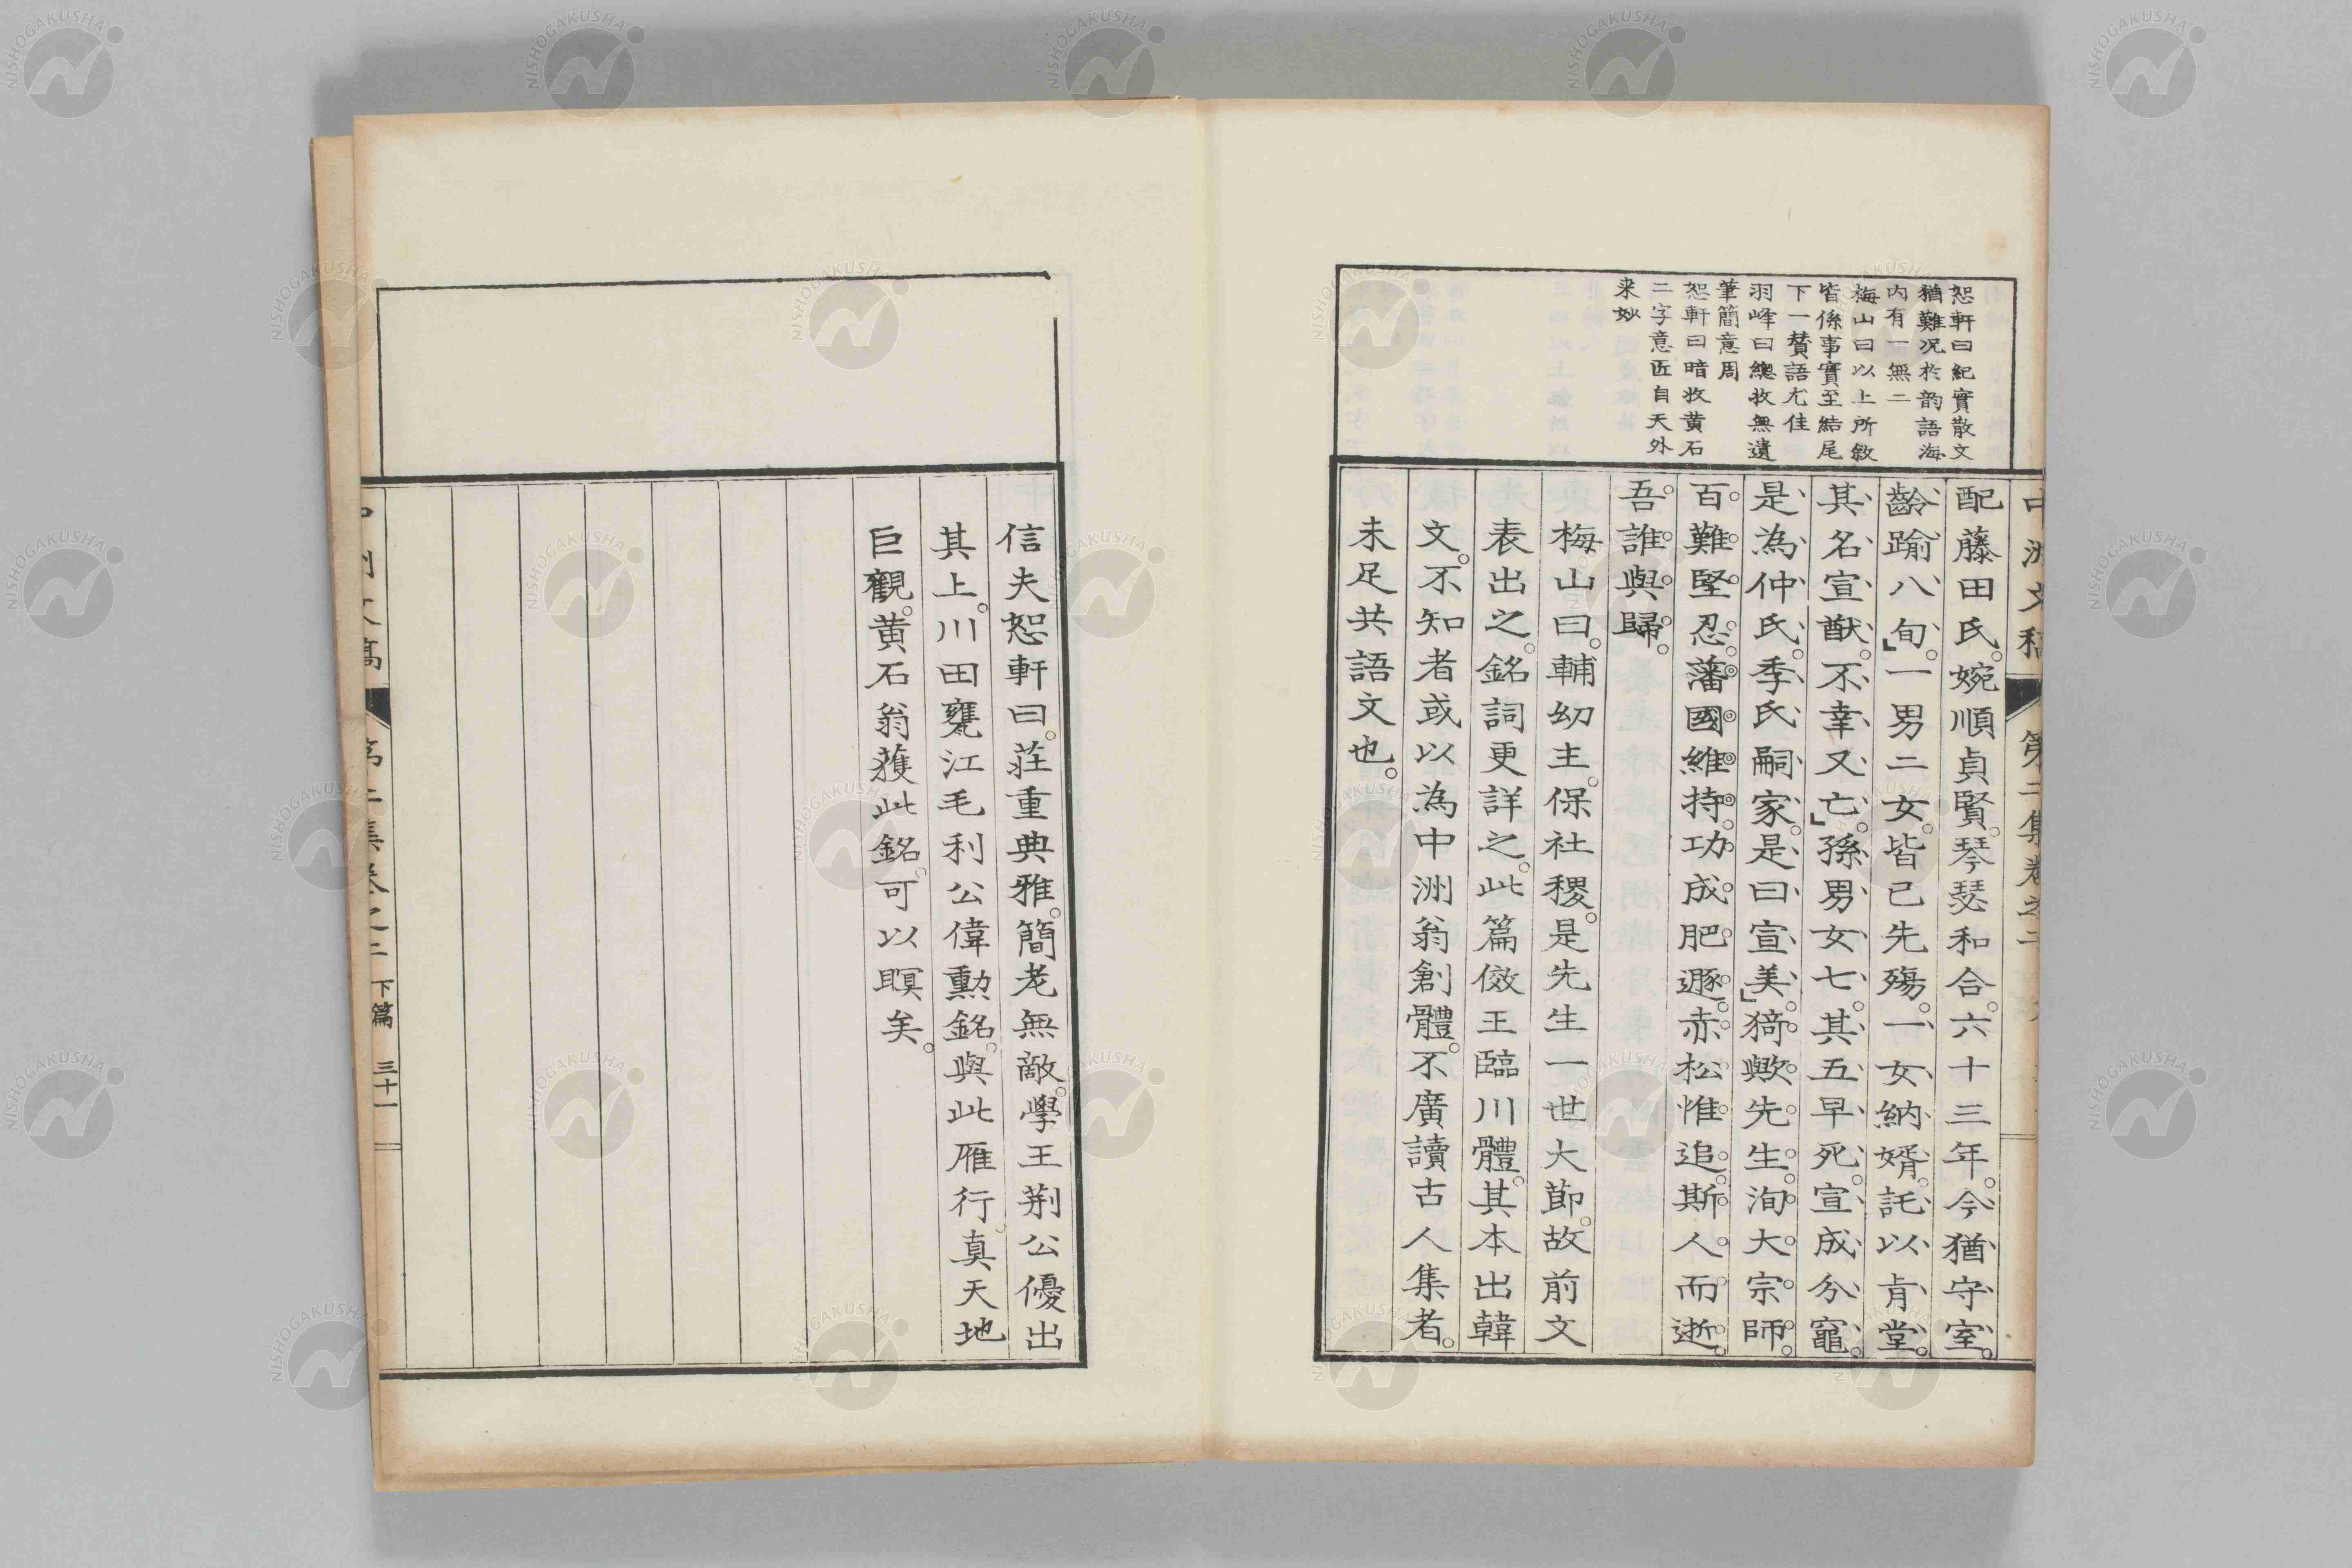 恕軒曰紀實散文
猶難况於韵語海
内有一無二
梅山曰以上所敘
皆係事實至結尾
下一賛語尤佳
羽峰曰總收無遺
筆簡意周
恕軒曰暗收黄石
二字意匠自天外
来妙
配藤田氏。婉順貞賢。琴瑟和合。六十三年。今猶守室。
齡踰八旬。一男二女。皆已先殤。一女納婿。託以肯堂。
其名宣猷。不幸又亡。孫男女七。其五早死。宣成分竈。
是為仲氏。季氏嗣家。是曰宣美。猗歟先生。洵大宗師。
百難堅忍。藩國維持。功成肥遯。赤松惟追。斯人而逝。
吾誰與歸。
梅山曰。輔幼主。保社稷。是先生一世大節。故前文
表出之。銘詞更詳之。此篇倣王臨川體。其本出韓
文。不知者或以為中洲翁創體。不廣讀古人集者。
未足共語文也。
信夫恕軒曰。荘重典雅。簡老無敵。學王荆公優出
其上。川田甕江毛利公偉勳銘。與此雁行。真天地
巨觀。黄石翁獲此銘。可以瞑矣。
下篇 三十一
NISHOGAKUSHA